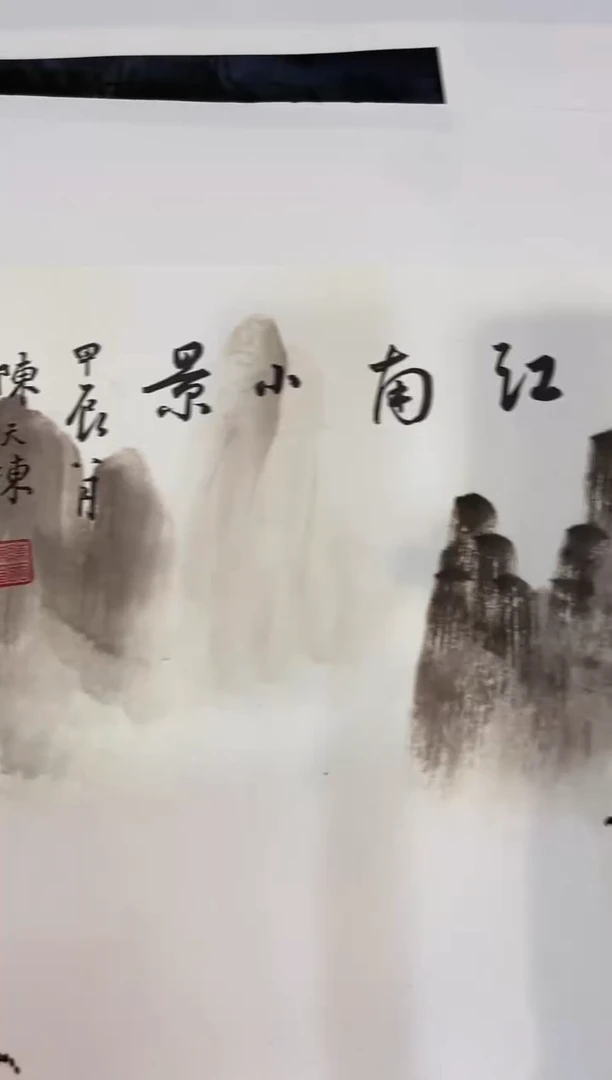 江南小景
甲辰八月
陳天